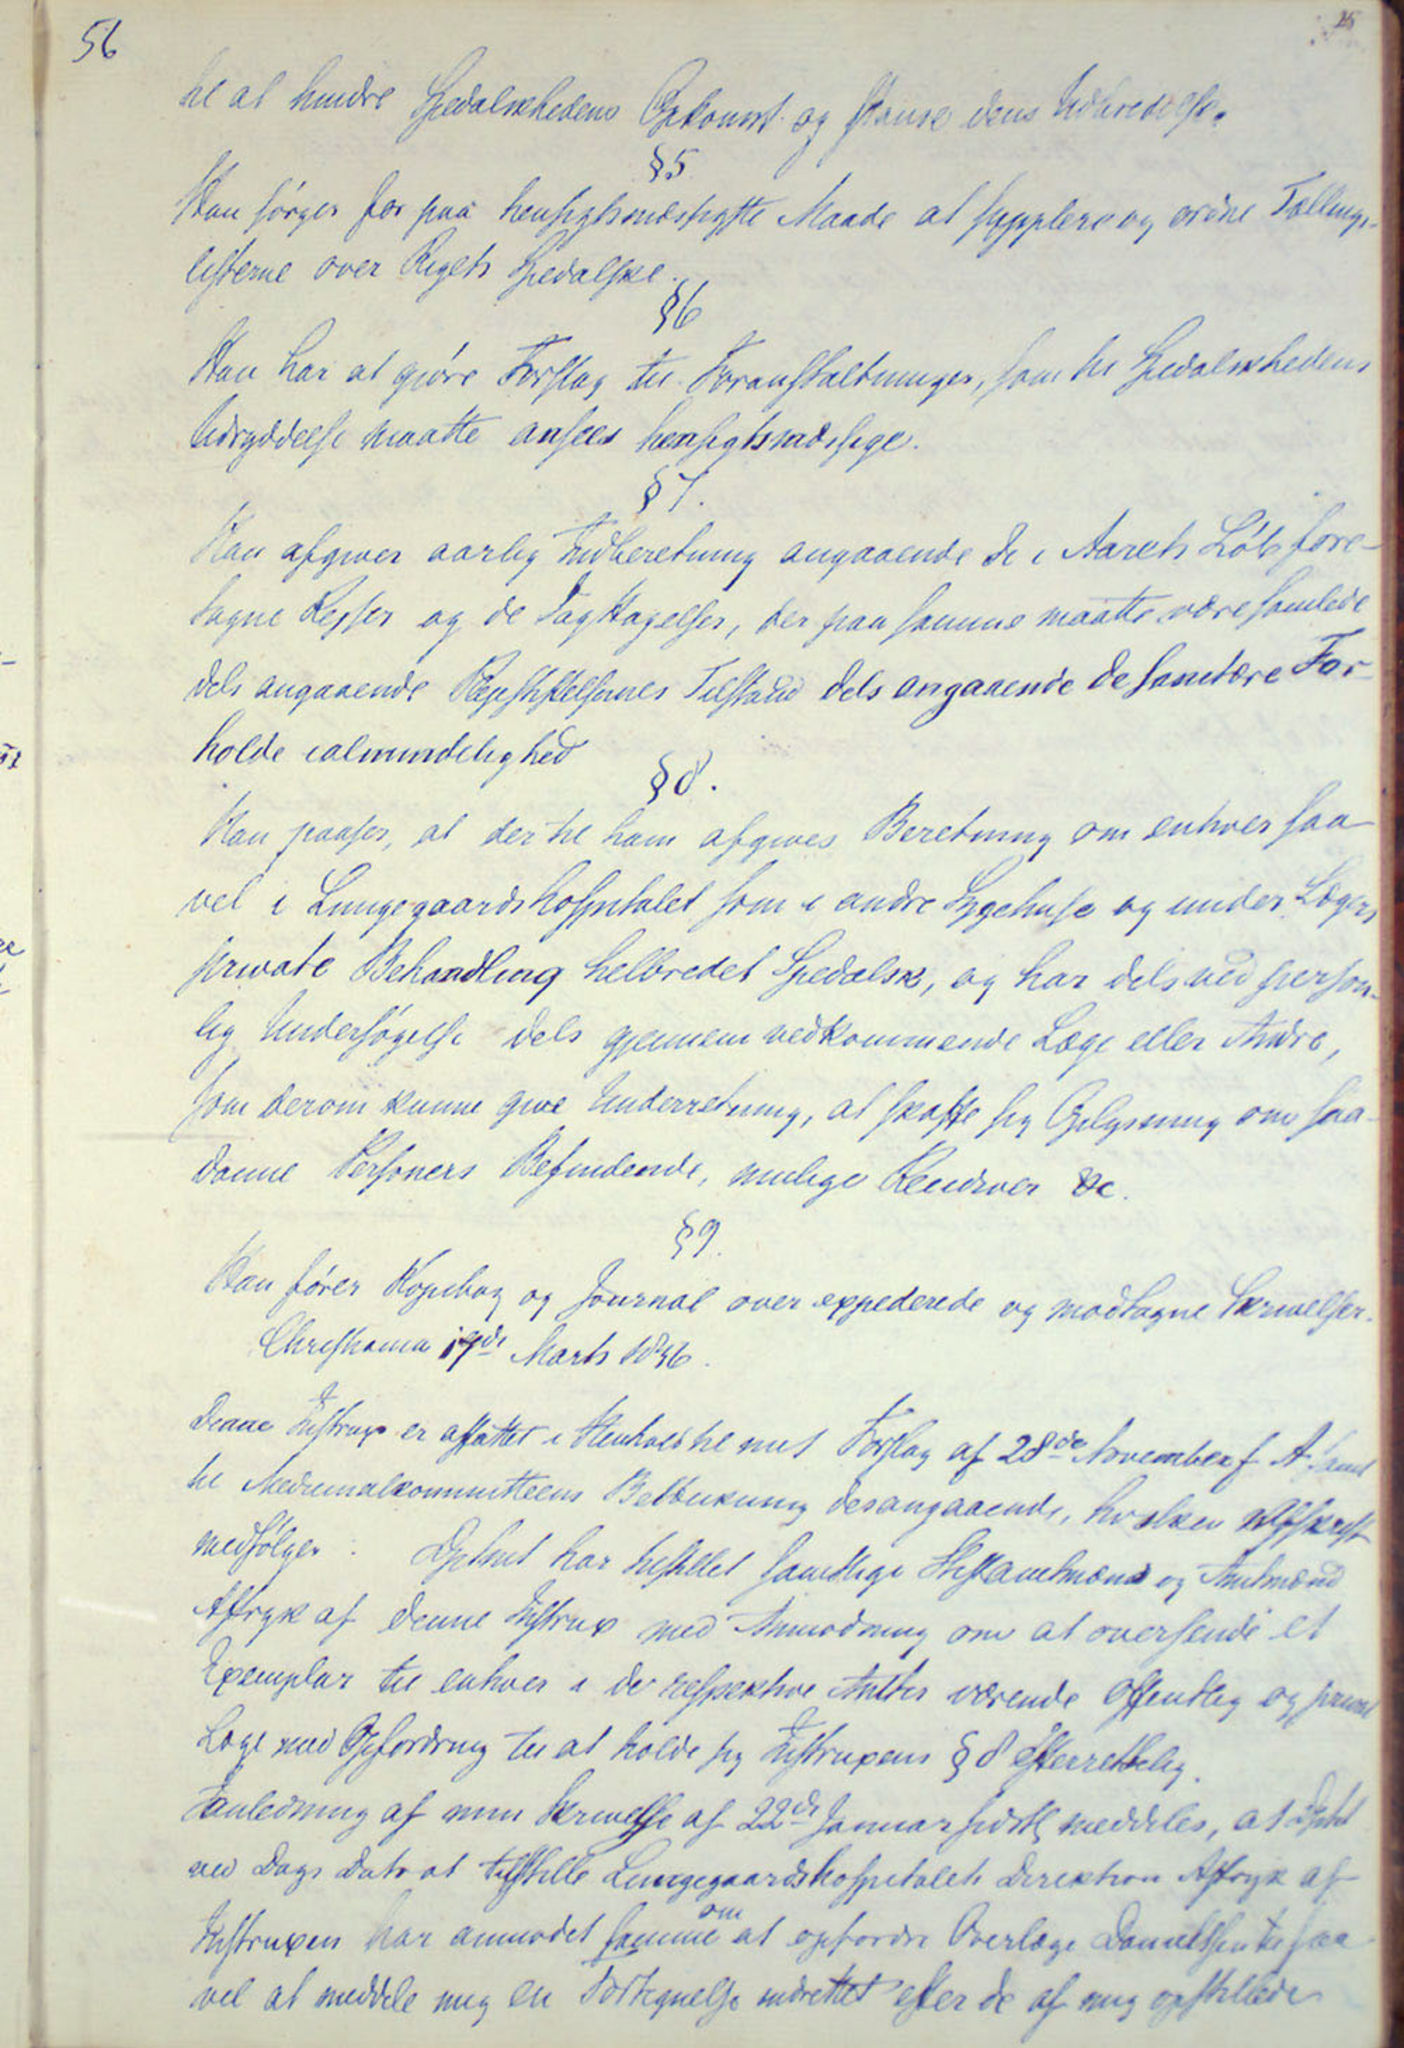 56
25
til at hindre Spedalskhedens Opkomst og standse dens Udbredelse.
§5
Han sørger for paa hensigtsmæssigste Maade at supplere og ordne Tællings-
listerne over Rigets Spedalske.
§6
Han har at gjøre Forslag til Foranstaltninger, som til Spedalskhedens
Udryddelse maatte ansees hensigtsmæssige.
§7.
Han afgiver aarlig Indberetning angaaende de i Aarets Løb fore-
tagne Rejser og de Iagttagelser, der paa samme maatte være samlede
dels angaaende Plejestiftelsernes Tilstand dels angaaende de sanitære For-
holde ialmindelighed
§8.
Han paaser, at der til ham afgives Beretning om enhver saa-
vel i Lungegaardshospitalet som i andre Sygehuse og under Lægers
private Behandling helbredet Spedalsk, og har dels ved person-
lig Undersøgelse dels gjennem vedkommende Læge eller Andre,
som derom kunne give Underretning, at skaffe sig Oplysning om saa-
danne Personers Befindende, mulige Recidiver &c.
§9.
Han fører Kopibog og Journal over expederede og modtagne Skrivelser.
Christiania 19de Marts 1856.
Denne Instrux er affattet i Henhold til mit Forslag af 28de November f A samt
til Medicinalkommitteens Betænkning desangaaende, hvilken Afskrift
medfølger. Dptmt har tilstillet samtlige Stiftamtmænd og Amtmænd
Aftryk af denne Instrux med Anmodning om at oversende et
Exemplar til enhver i de respektive Amter værende offentlig og privat
Læge med Opfordring til at holde sig Instruxens §8 efterrettelig.
I Anledning af min Skrivelse af 22de Januar sidstl meddeles, at Dptmt
ved Dags Dato at tilstille Lungegaardshospitalets Direktion Aftryk af
Instruxen har anmodet samme om at opfordre Overlæge Danielssen til saa-
vel at meddele mig en Fortegnelse indrettet efter de af mig opstillede